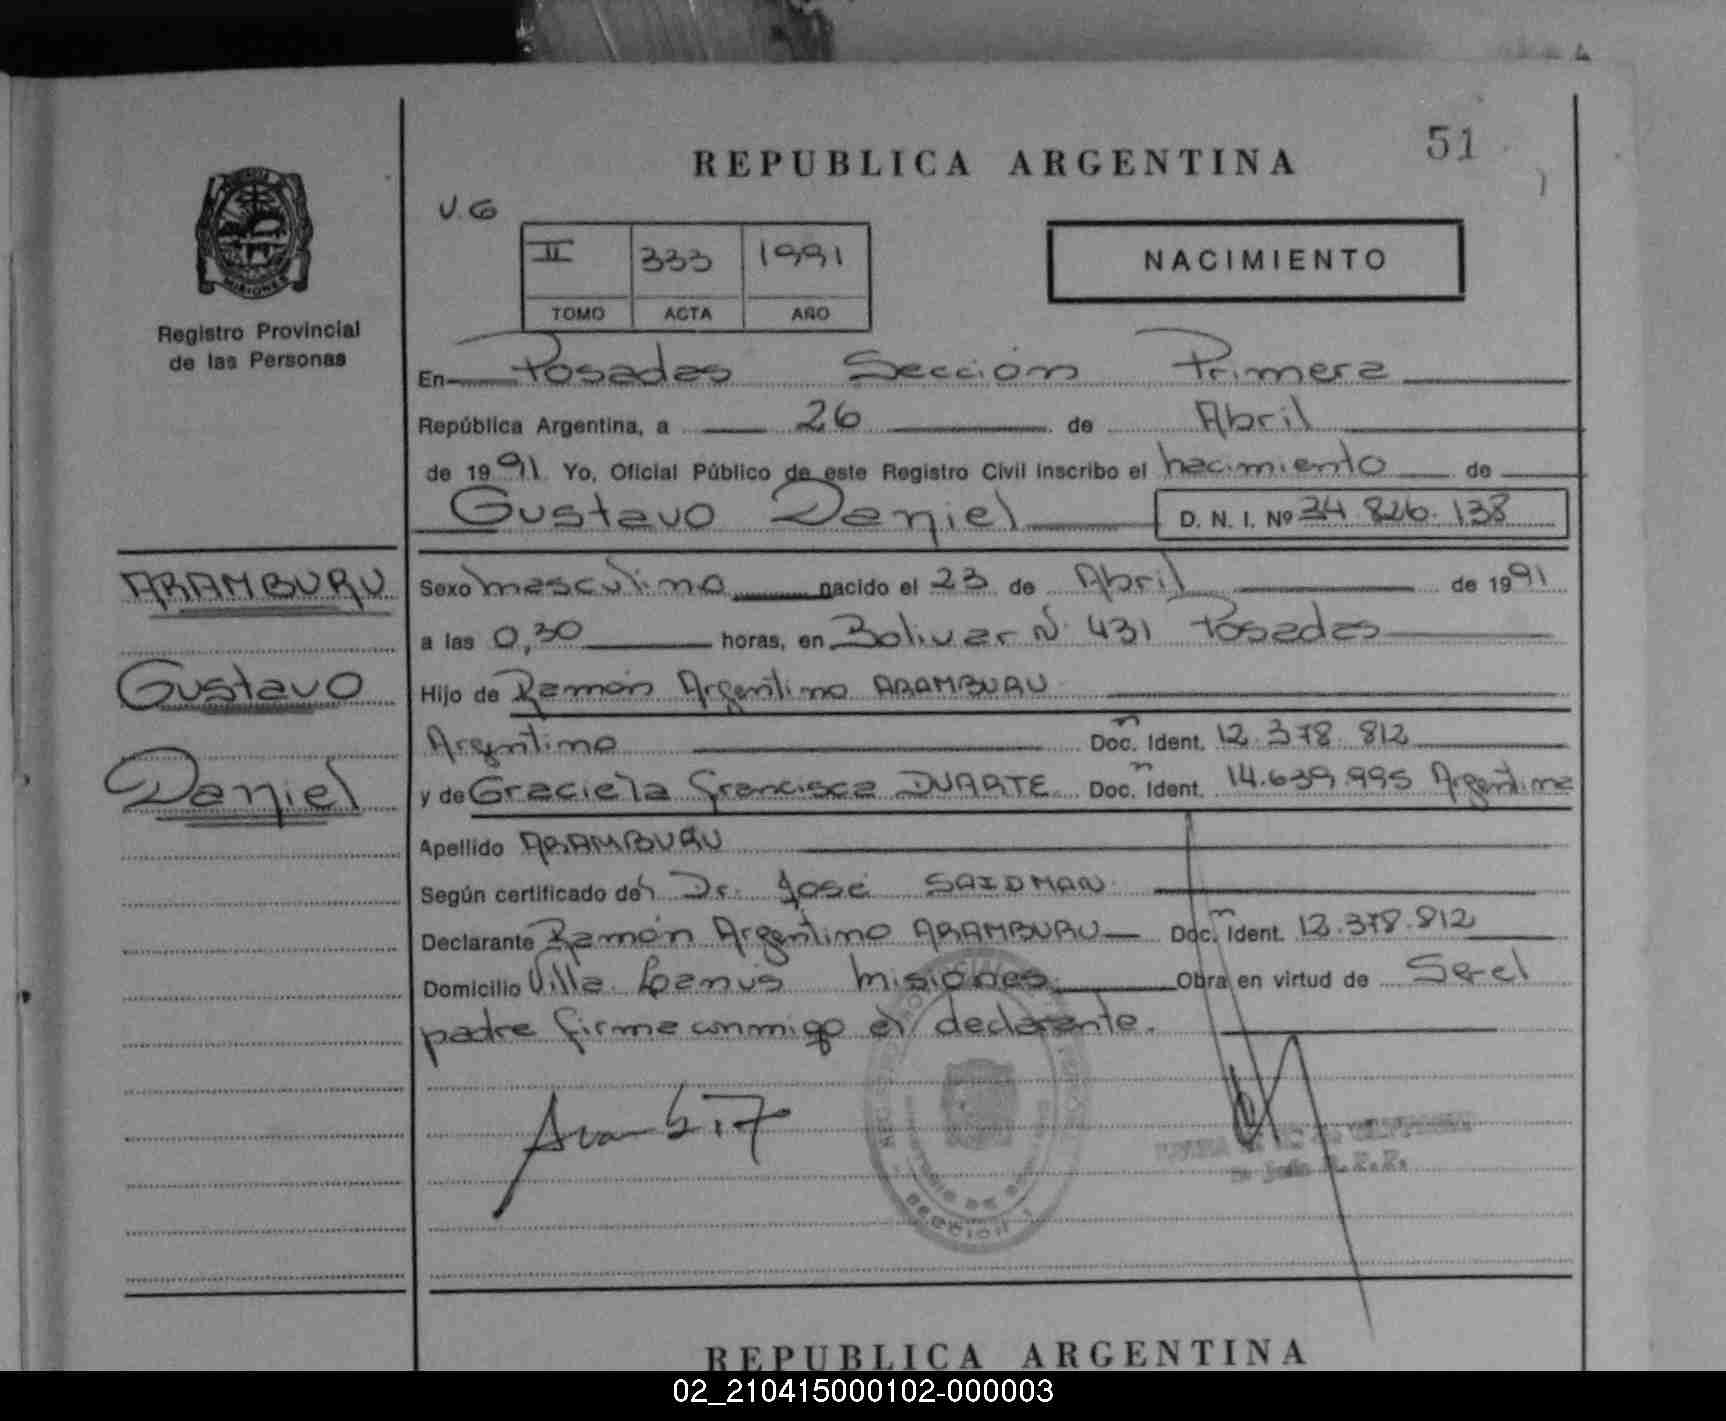 51
REPUBLICA ARGENTINA
V.G
II 333 1991
TOMO ACTA AÑO
NACIMIENTO
MISIONES
Registro Provincial
de las Personas
En Posadas Sección Primera
República Argentina, a 26 de Abril
de 1991 Yo, Oficial Público de este Registro Civil inscribo el nacimiento de
Gustavo Daniel D. N. I. Nº 34 826. 138
ARAMBURU
Gustavo
Daniel
Sexo masculino nacido el 23 de Abril de 1991
a las 0,30 horas, en Bolivar Nº 431 Posadas
Hijo de Ramón Argentino ARAMBURU
Argentino Doc. Ident. 12.378.812
y de Graciela Francisca DUARTE Doc. Ident. 14.639.995 Argentina
Apellido ARAMBURU
Según certificado del Dr. José SAIDMAN
Declarante Ramón Argentino ARAMBURU Doc. Ident. 12.378.812
Domicilio Villa Lanús Misiones Obra en virtud de Ser el
padre firma conmigo el declarante.
SECCION 1
REPUBLICA ARGENTINA
02_210415000102-000003